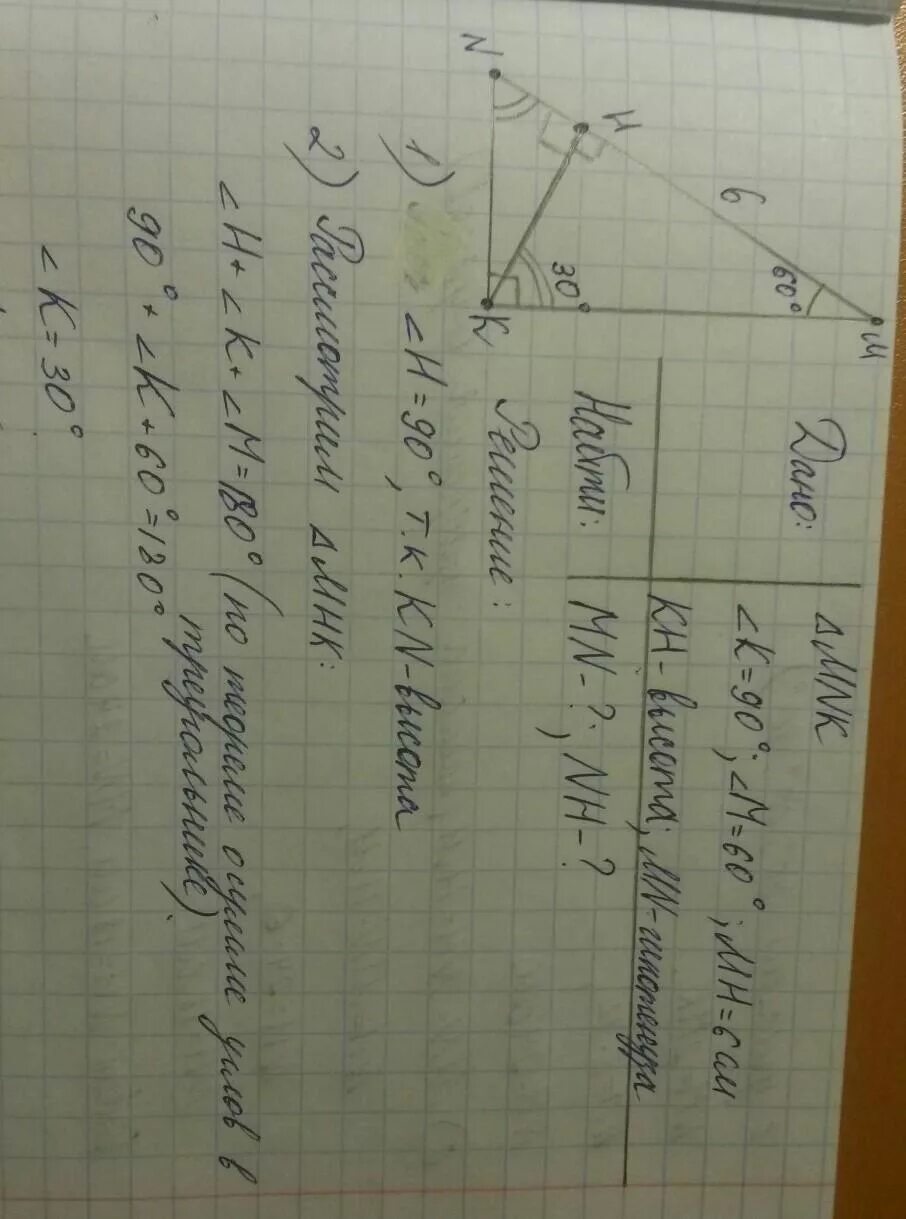 Дано:
ΔMNK
∠K=90°; ∠M=60°; MH=6 см
KH-высота; MN-гипотенуза
Найти:
MN-?; NH-?
Решение:
N
H
6
60°
M
30°
K
1) ∠H=90°, т.к. KN-высота
2) Рассмотрим ΔMHK:
∠H+∠K+∠M=180° (по теореме о сумме углов в
треугольнике)
90°+∠K+60°=180°
∠K=30°